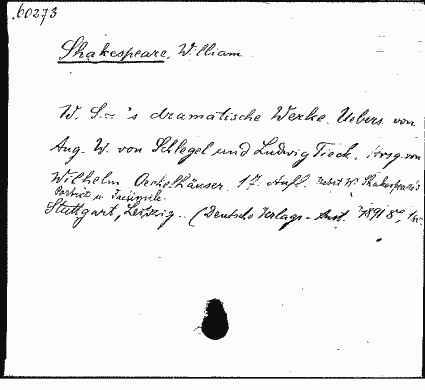 60273
Shakespeare, William
W. S.-'s dramatische Werke. Uebers. von
Aug. W. von Schlegel und Ludwig Tieck. Hrsg. von
Wilhelm Oechelhäuser. 17. Aufl. Nebst W. Shakespeare's
Porträt u. Facsimile.
Stuttgart, Leipzig.. (Deutsche Verlags-Anst. 1891 8°,